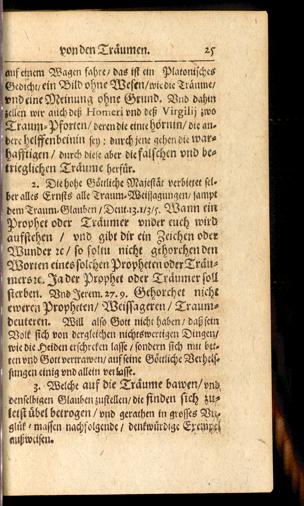 von den Träumen. 25
auf einem Wagen fahre/ das ist ein Platonisches
Gedicht/ ein Bild ohne Wesen/ wie die Träume/
vnd eine Meinung ohne Grund. Vnd dahin
zellen wir auch deß Homeri vnd deß Virgilij zwo
Traum-Pforten/ deren die eine hörnin/ die an-
dere helffenbeinin sey: durch jene gehen die war-
hafftigen/ durch diese aber die falschen vnd be-
trieglichen Träume herfür.
2. Die hohe Göttliche Majestät verbietet sel-
ber alles Ernsts alle Traum-Weissagungen/ sampt
dem Traum-Glauben/ Deut.13.1/3/5. Wann ein
Prophet oder Träumer vnder euch wird
aufstehen / vnd gibt dir ein Zeichen oder
Wunder ꝛc/ so soltu nicht gehorchen den
Worten eines solchen Propheten oder Träu-
mers ꝛc. Ja der Prophet oder Träumer soll
sterben. Vnd Jerem. 27. 9. Gehorchet nicht
eweren Propheten/ Weissageren/ Traum-
deuteren. Will also Gott nicht haben/ daß sein
Volk sich von dergleichen nichtswertigen Dingen/
wie die Heiden erschreken lasse/ sondern sich mit bet-
ten vnd Gott vertrawen/ auf seine Göttliche Verheis-
sungen einig vnd allein verlasse.
3. Welche auf die Träume bawen/ vnd
denselbigen Glauben zustellen/ die finden sich zu-
letst übel betrogen/ vnd gerathen in grosses Vn-
glük/ massen nachfolgende/ denkwürdige Exempel
außweisen.